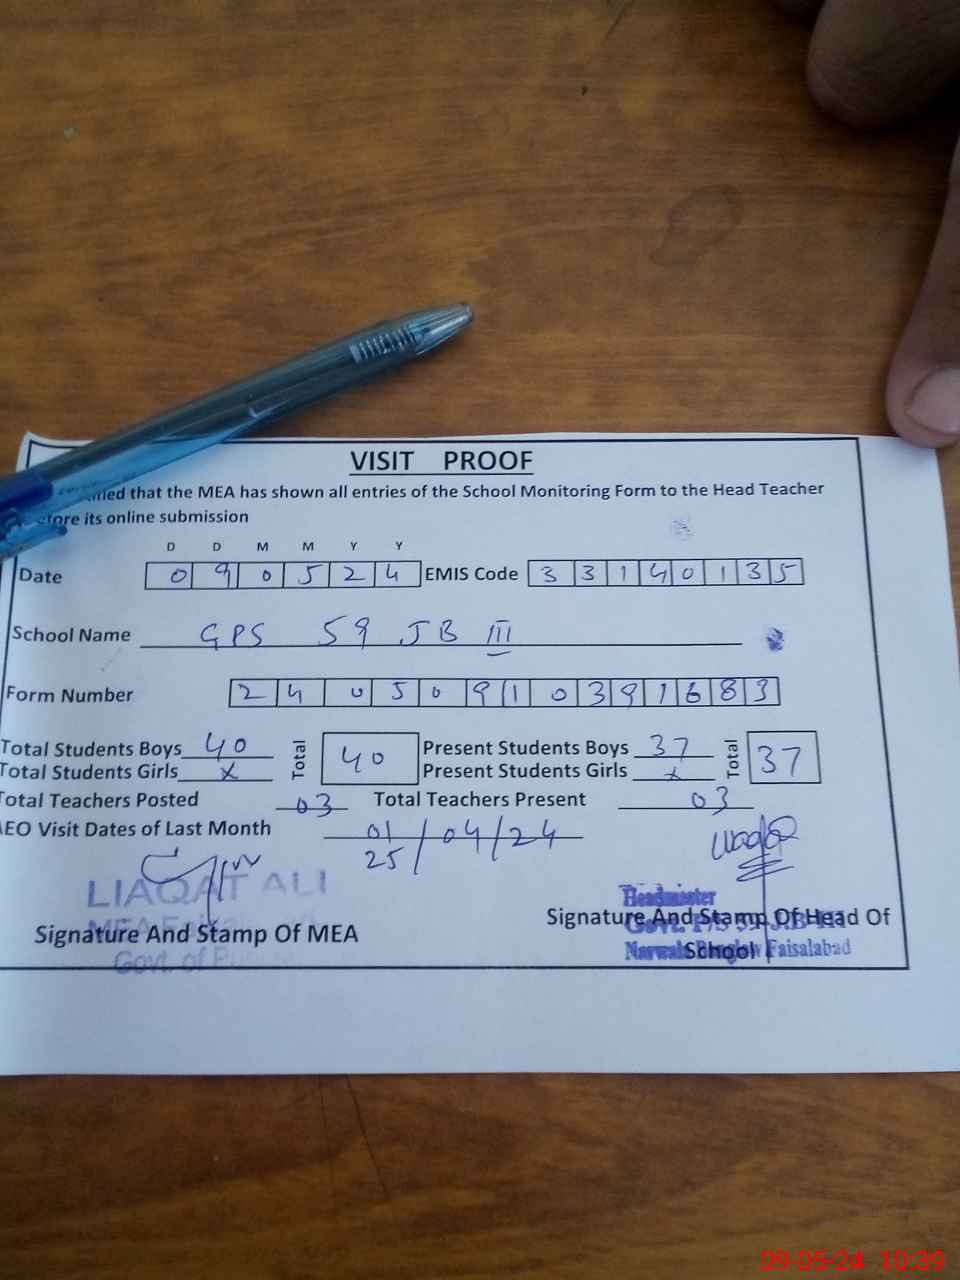 VISIT PROOF
that the MEA has shown all entries of the School Monitoring Form to the Head Teacher
its online submission
D D M M Y Y
Date 0 9 0 5 2 4 EMIS Code 3 3 1 4 0 1 3 5
School Name GPS 59 JB III
Form Number 2 4 0 5 0 9 1 0 3 9 1 6 8 3
Total Students Boys 40 Total 40 Present Students Boys 37 Total 37
Total Students Girls x Present Students Girls x
Total Teachers Posted 03 Total Teachers Present 03
AEO Visit Dates of Last Month 01/04/24
25
LIAQAT ALI
Signature And Stamp Of MEA
Govt. of
Headmister
Signature And Stamp Of Head Of
School
Faisalabad
09-05-24 10:39